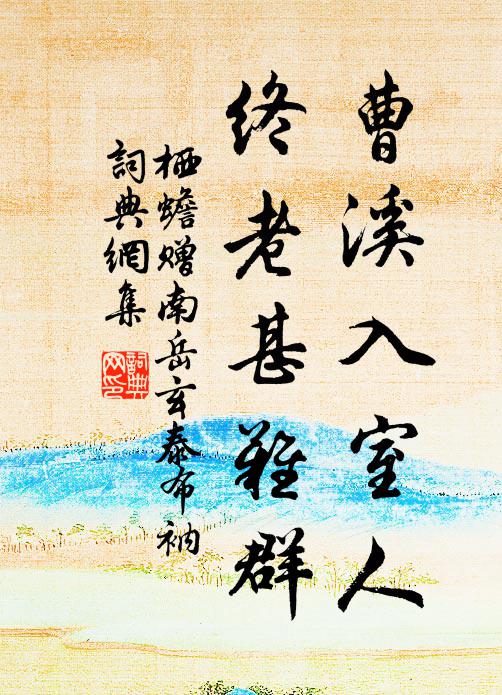 曹溪入室人
終老甚難群
栖蟾赠南岳玄泰布衲
詞典網集
詞典
網印